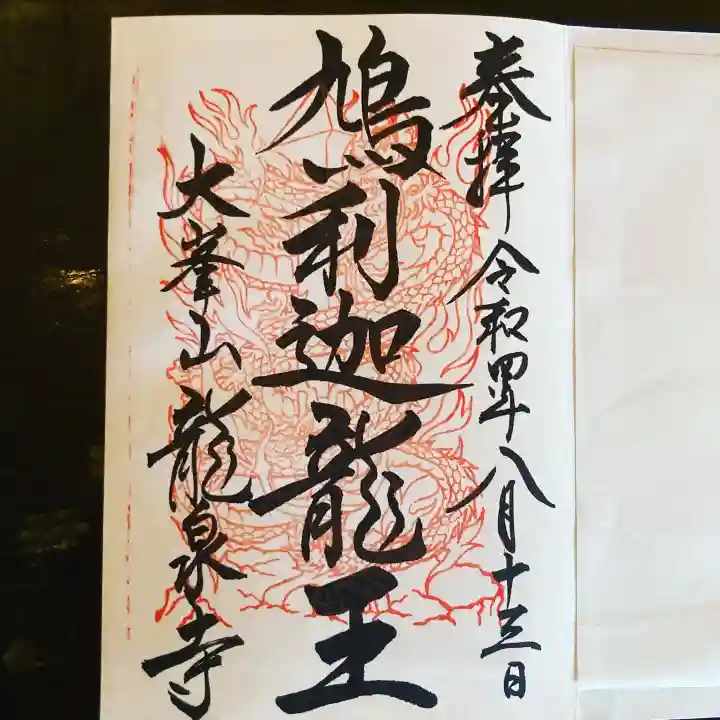 奉拝 令和四年八月十三日
鳩利迦龍王
大峯山龍泉寺